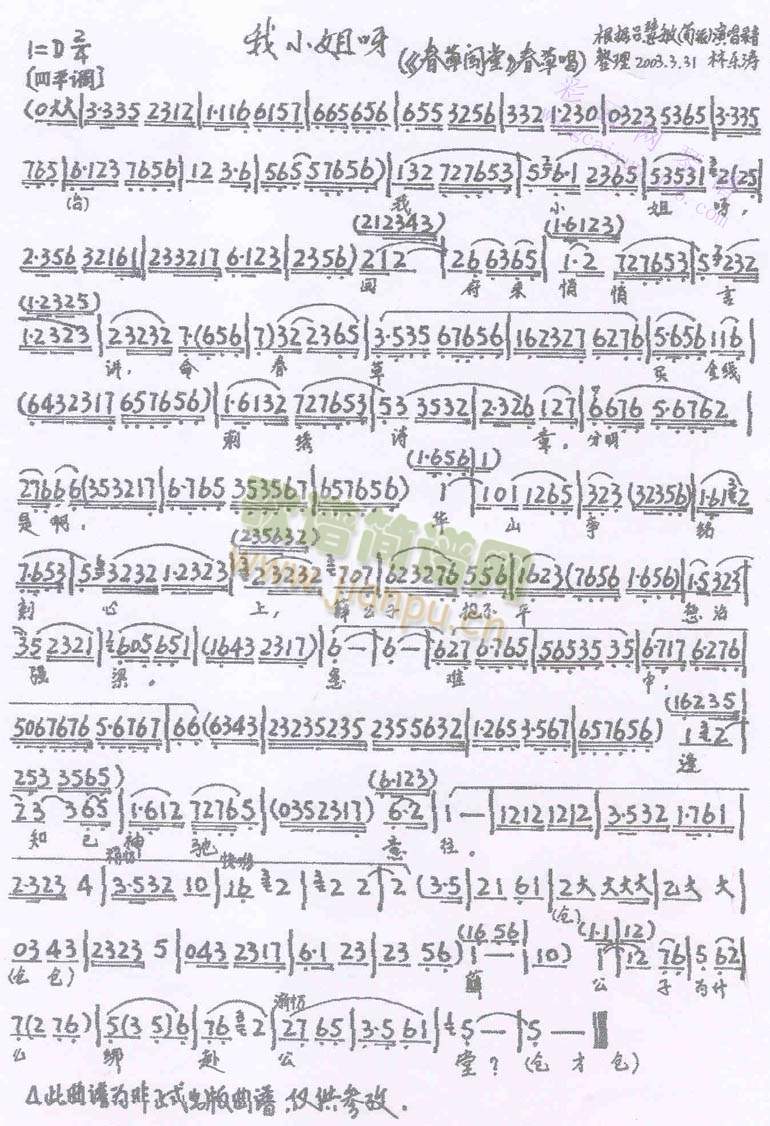 我小姐呀
1=D 2/4
(《春草闯堂》春草唱)
根据吕慧敏(荀派)演唱录音
整理 2003.3.31 林东涛
[四平调]
(0大大|3·335 2312|1·116 6157|665656|655 3256|332 1·230|0323 5365|3·335
765|6·123 7656|12 3·6|565 57656)|132 727653|5 6·1 2365|53531 2(25|
(台) 我 小 姐 呀,
(212343) (1·6123)
2·356 32161|233217 6·123|2356) 212|26 6365|1·2 727653|5 3232
回 府 来 悄 悄 言
(1·2325)
1·2323|23232 7·(656|7)32 2365|3·535 67656|162327 6276|5·656 116|
讲, 命 春 草 买 金线
(6432317 657656)|1·6132 727653|53 3532|2·326 127|6676 5·6762|
刺 绣 诗 章, 分明
(1·656|1)
2766 6(353217|6·765 353567|657656) 1|101 1265|323 (32356)|1·61 2
是啊, 华 山 争 路
(235632)
7·653|5 3232 1·2323|23232 707|623276 556|1623(7656 1·656)|1·5 323|
射 心 上, 薛公子 抱不平 惩治
35 2321|6056 51|(1643 2317)|6—|6—|627 6·765|56535 35|6·717 6·276|
强 梁。 急 难 中,
(16235|
5067676 5·6767|66(6343|23235235 2355632|1·265 3·567|657656) 1 2|
逢
253 3565) (6·123)
23 365|1·612 72765|(0352317) 6·2|1—|1212 1212|3·532 1·761|
知 己 神 驰 意 往。
稍慢 快些
2·323 4|3·532 10|16 2|2 2|2(3·5|21 61|2大 大大大|乙大 大|
(仓)
(16 56| (1·1|12)
03 43|2323 5|043 2317|6·1 23|23 56) 1—|10) 1|12 76|5 62|
(仓仓) 薛 公 子 为什
渐慢
7(2 76)|5(3 5)6|76 2|27 65|3·5 61|5—|5—
么 绑 赴 公 堂? (仓 才 仓)
△此曲谱为非正式出版曲谱,仅供参考.
歌谱简谱网
www.jianpu.cn